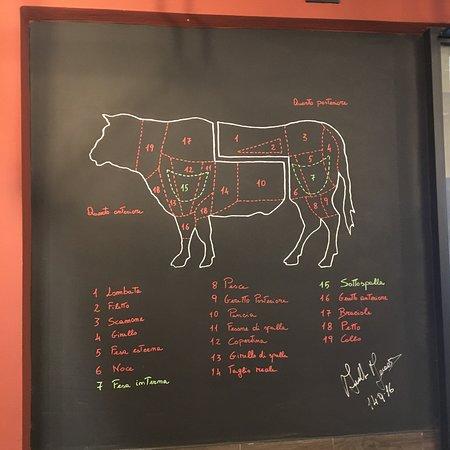 Quarto posteriore
19 17 1 2 3 4
5
12 11
15 7
18 14 10
13 6
18 8 9
16
Quarto anteriore
1 Lombata
2 Filetto
3 Scamone
4 Girello
5 Fesa esterna
6 Noce
7 Fesa interna
8 Pesce
9 Geretto Posteriore
10 Pancia
11 Fesone di spalla
12 Copertina
13 Girello di spalla
14 Taglio reale
15 Sottospalla
16 Geretto anteriore
17 Braciole
18 Petto
19 Collo
14.9.16